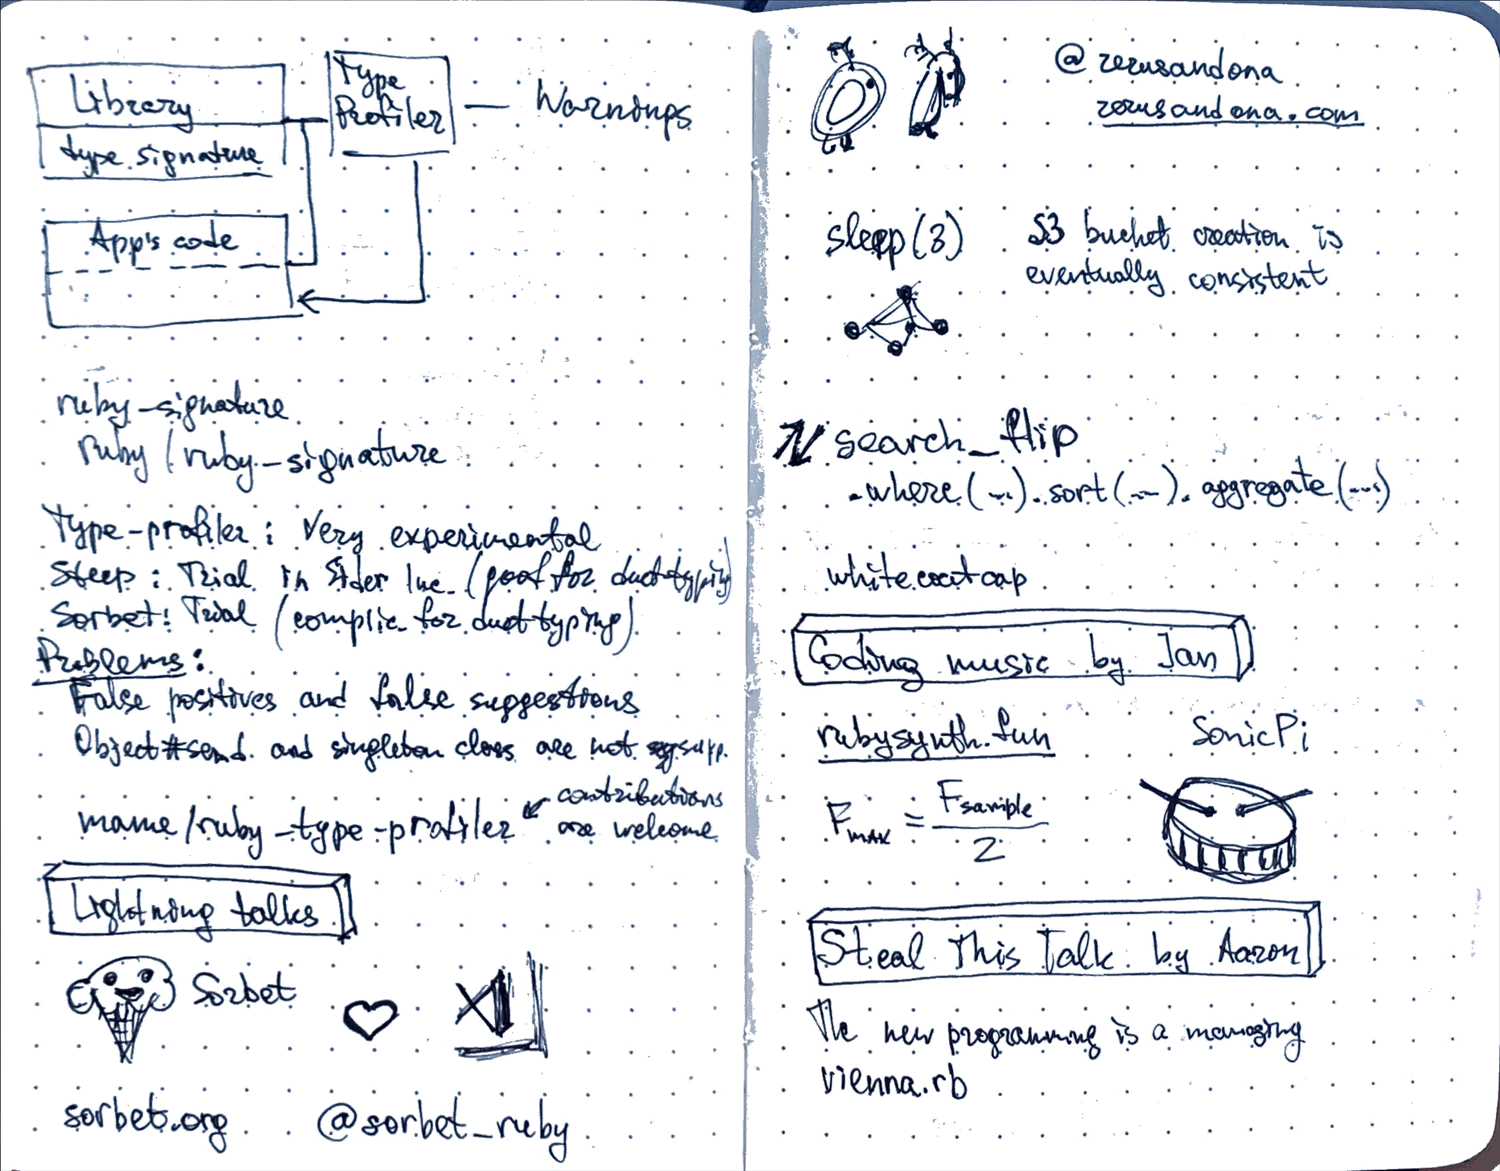 Library
type signature
Type
Profiler
Warnings
App's code
ruby-signature
ruby/ruby-signature
Type-profiler: Very experimental
Steep: Trial in Sider Inc. (good for duck typing)
Sorbet: Trial (complic. for duck typing)
Problems:
False positives and false suggestions
Object#send and singleton class are not supp.
mame/ruby-type-profiler
contributions
are welcome
Lightning talks
Sorbet
sorbet.org @sorbet_ruby
@rerusandona
rerusandona.com
sleep(3)
S3 bucket creation is
eventually consistent
search_flip
.where(...).sort(...).aggregate(...)
Coding music by Jan
rubysynth.fun
SonicPi
Fmax = Fsample
2
Steal This Talk by Aaron
The new programming is a managing
vienna.rb